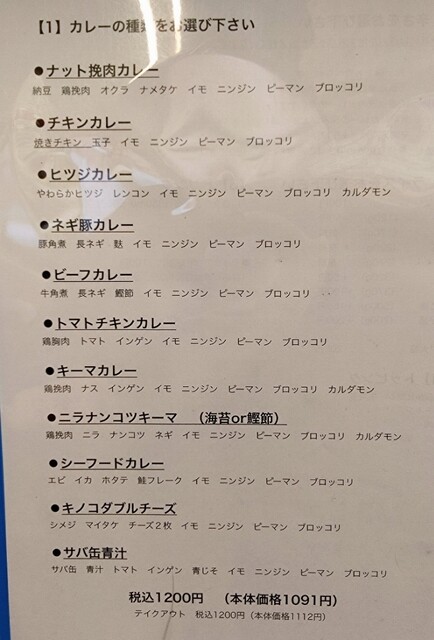 【1】カレーの種類をお選び下さい
●ナット挽肉カレー
納豆 鶏挽肉 オクラ ナメタケ イモ ニンジン ピーマン ブロッコリ
●チキンカレー
焼きチキン 玉子 イモ ニンジン ピーマン ブロッコリ
●ヒツジカレー
やわらかヒツジ レンコン イモ ニンジン ピーマン ブロッコリ カルダモン
●ネギ豚カレー
豚角煮 長ネギ 麩 イモ ニンジン ピーマン ブロッコリ
●ビーフカレー
牛角煮 長ネギ 鰹節 イモ ニンジン ピーマン ブロッコリ
●トマトチキンカレー
鶏胸肉 トマト インゲン イモ ニンジン ピーマン ブロッコリ
●キーマカレー
鶏挽肉 ナス インゲン イモ ニンジン ピーマン ブロッコリ カルダモン
●ニラナンコツキーマ （海苔or鰹節）
鶏挽肉 ニラ ナンコツ ネギ イモ ニンジン ピーマン ブロッコリ カルダモン
●シーフードカレー
エビ イカ ホタテ 鮭フレーク イモ ニンジン ピーマン ブロッコリ
●キノコダブルチーズ
シメジ マイタケ チーズ２枚 イモ ニンジン ピーマン ブロッコリ
●サバ缶青汁
サバ缶 青汁 トマト インゲン 青じそ イモ ニンジン ピーマン ブロッコリ
税込1200円 （本体価格1091円）
テイクアウト 税込1200円（本体価格1112円）